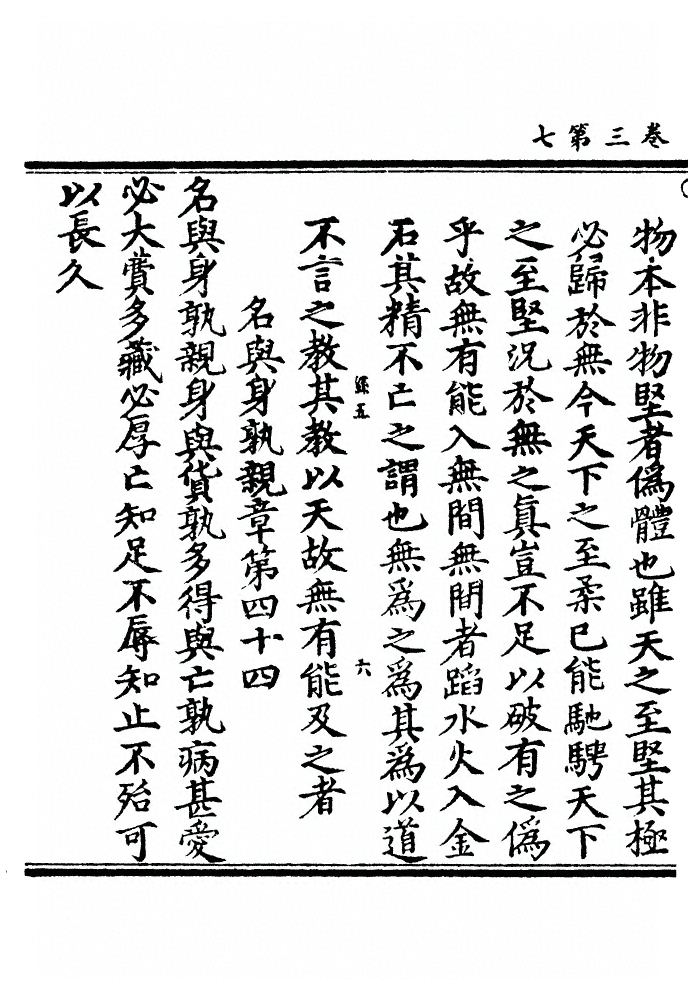 卷三第七
物本非物堅者偽體也雖天之至堅其極
必歸於無今天下之至柔已能馳騁天下
之至堅況於無之真豈不足以破有之偽
乎故無有能入無間無間者蹈水火入金
石其精不亡之謂也無為之為其為以道
五
六
不言之教其教以天故無有能及之者
名與身孰親章第四十四
名與身孰親身與貨孰多得與亡孰病甚愛
必大費多藏必厚亡知足不辱知止不殆可
以長久